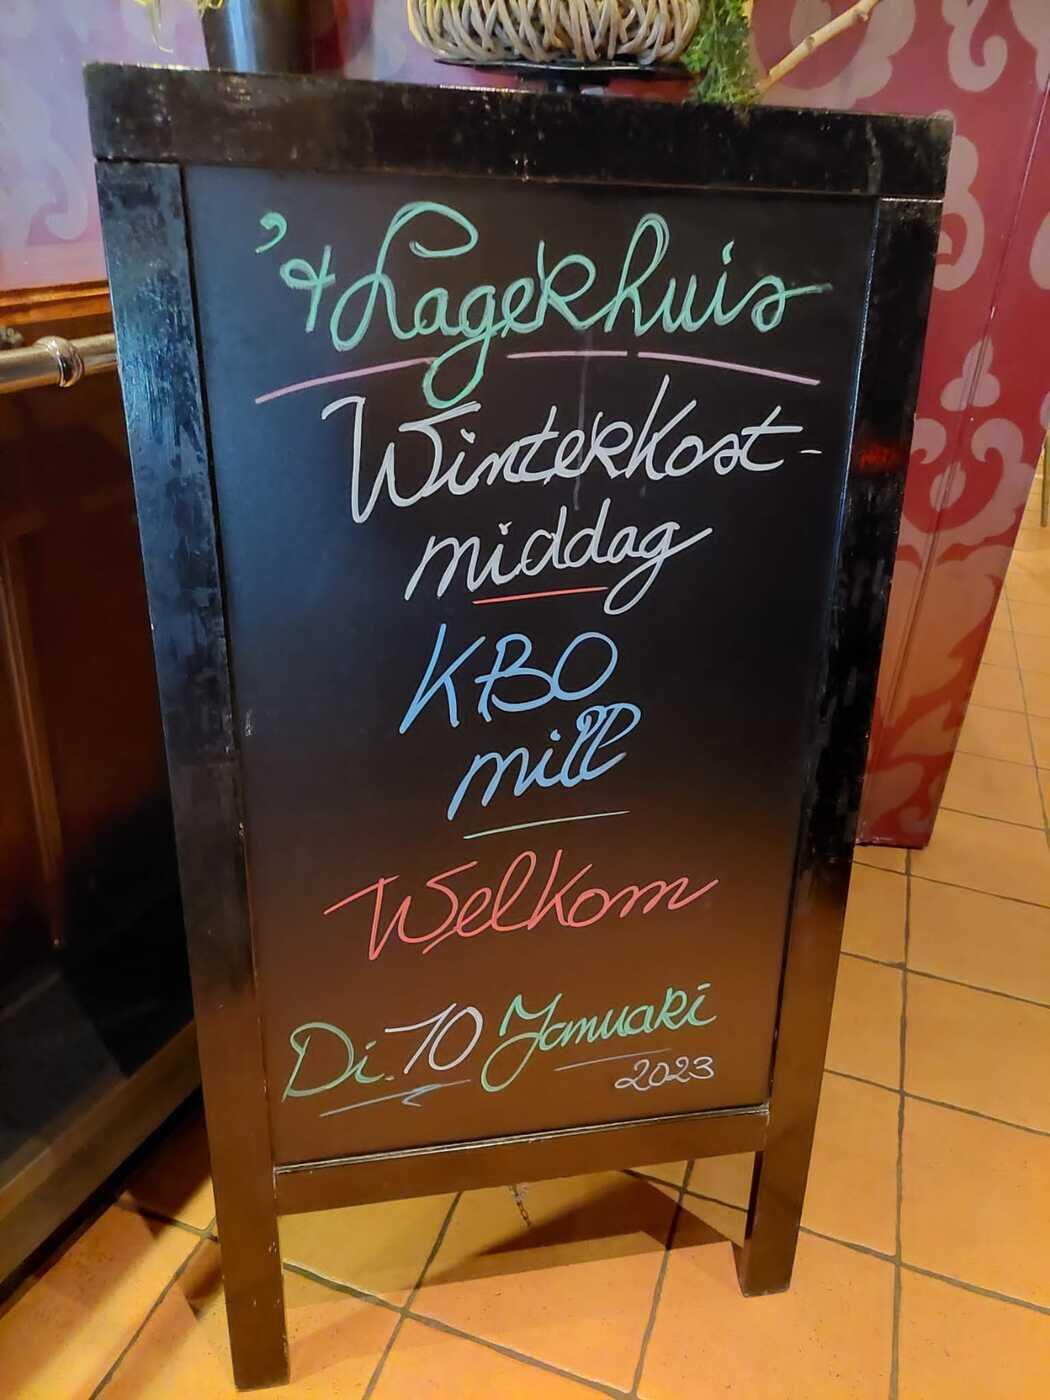 't Lagerhuis
Winterkost-
middag
KBO
mill
Welkom
Di. 10 Januari
2023